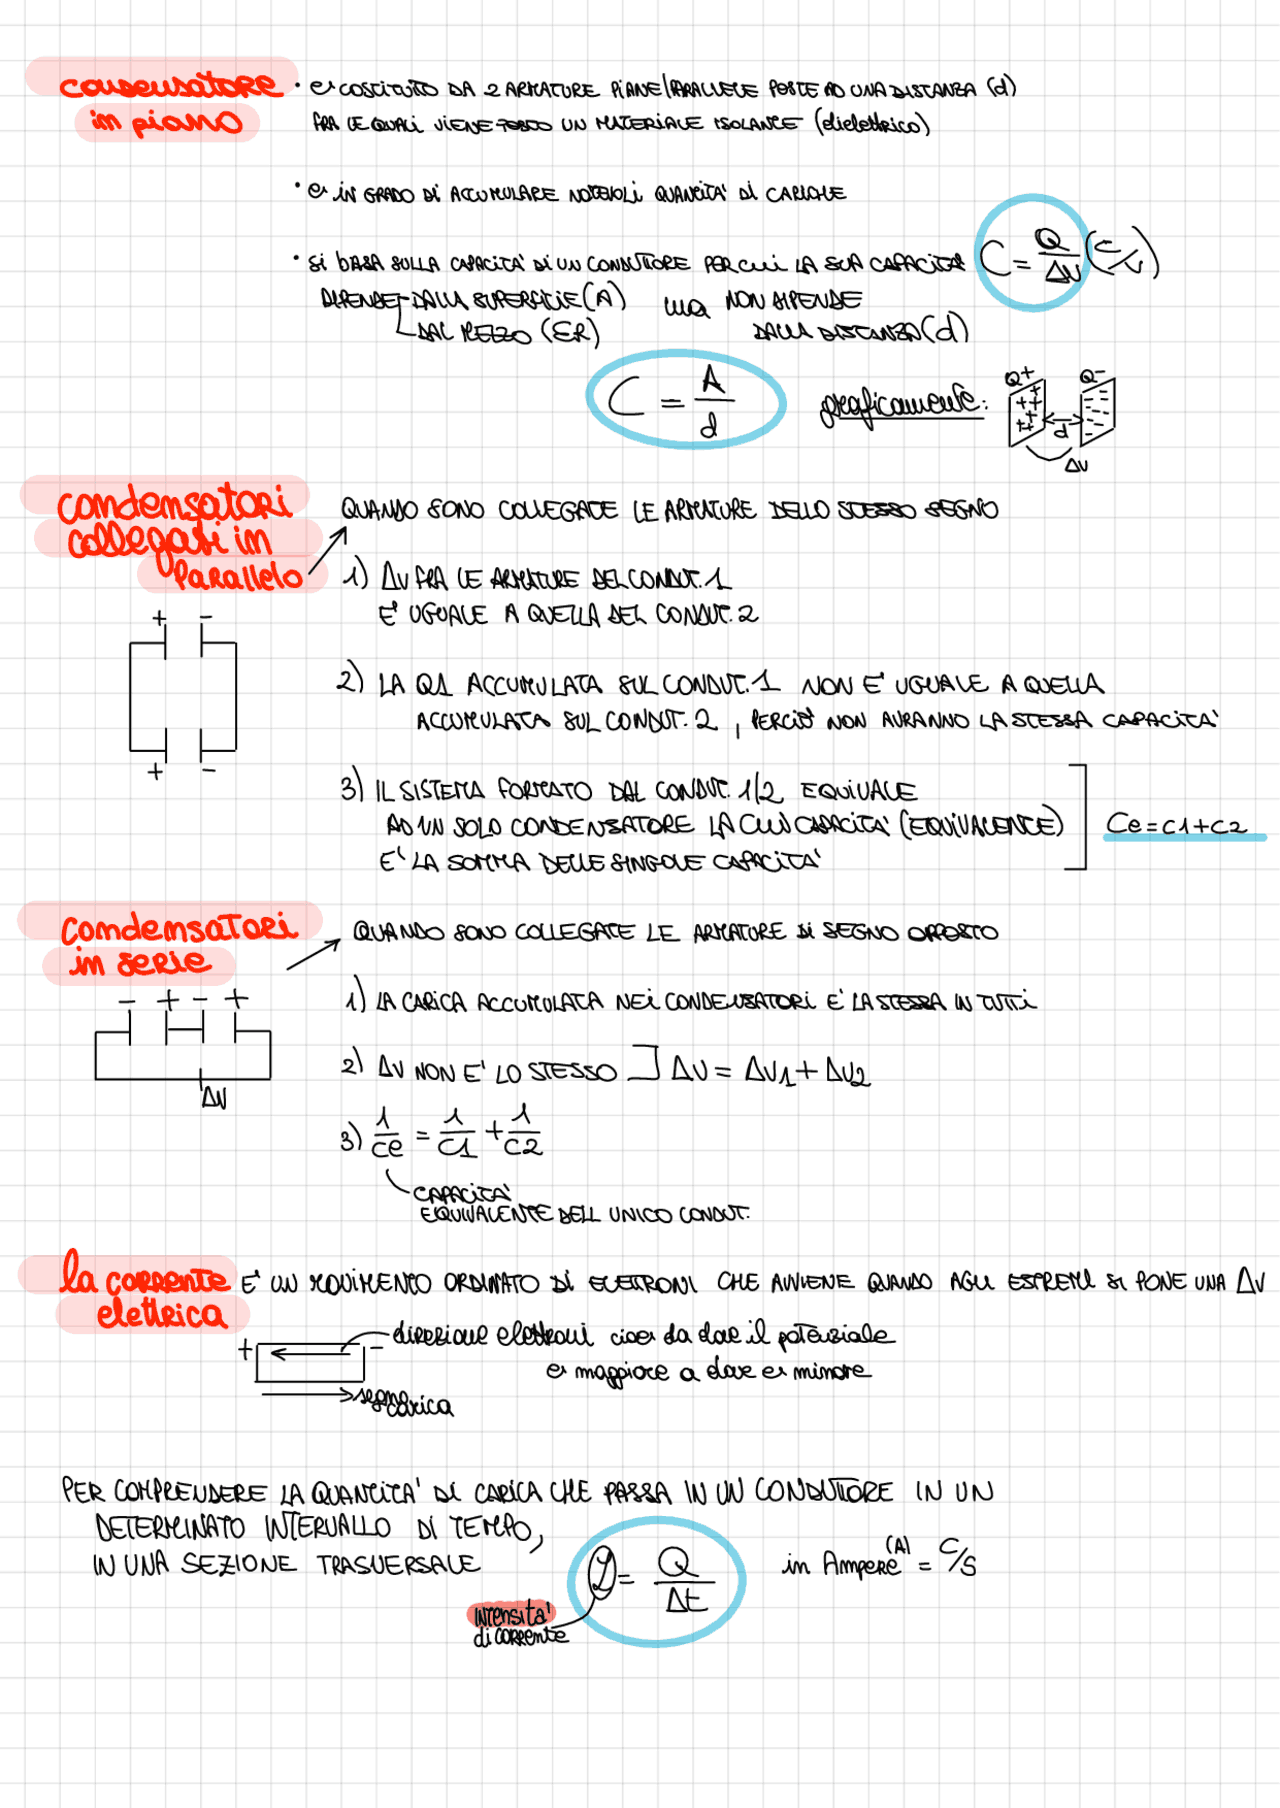 condensatore
in piano
• è COSTITUITO DA 2 ARMATURE PIANE/PARALLELE POSTE AD UNA DISTANZA (d)
FRA LE QUALI VIENE POSTO UN MATERIALE ISOLANTE (dielettrico)
• è IN GRADO DI ACCUMULARE NOTEVOLI QUANTITA' DI CARICHE
• SI BASA SULLA CAPACITA' DI UN CONDUTTORE PER CUI LA SUA CAPACITA' C = Q/ΔV (C/V)
DIPENDE DALLA SUPERFICIE (A) ma NON DIPENDE
DAL MEZZO (ER) DALLA DISTANZA (d)
C = A/d graficamente:
Q+ Q-
d
ΔV
condensatori
collegati in
parallelo
QUANDO SONO COLLEGATE LE ARMATURE DELLO STESSO SEGNO
1) ΔV FRA LE ARMATURE DEL CONDUT. 1
E' UGUALE A QUELLA DEL CONDUT. 2
+ -
2) LA Q1 ACCUMULATA SUL CONDUT. 1 NON E' UGUALE A QUELLA
ACCUMULATA SUL CONDUT. 2, PERCIO' NON AVRANNO LA STESSA CAPACITA'
+ -
3) IL SISTEMA FORMATO DAL CONDUT. 1/2 EQUIVALE
AD UN SOLO CONDENSATORE LA CUI CAPACITA' (EQUIVALENTE)
E' LA SOMMA DELLE SINGOLE CAPACITA'
Ce = C1 + C2
condensatori
in serie
QUANDO SONO COLLEGATE LE ARMATURE DI SEGNO OPPOSTO
- + - +
ΔV
1) LA CARICA ACCUMULATA NEI CONDENSATORI E' LA STESSA IN TUTTI
2) ΔV NON E' LO STESSO ] ΔV = ΔV1 + ΔV2
3) 1/Ce = 1/C1 + 1/C2
CAPACITA'
EQUIVALENTE DELL UNICO CONDUT.
la corrente
elettrica
E' UN MOVIMENTO ORDINATO DI ELETTRONI CHE AVVIENE QUANDO AGLI ESTREMI SI PONE UNA ΔV
+ - direzione elettroni cioè da dove il potenziale
è maggiore a dove è minore
segno
carica
PER COMPRENDERE LA QUANTITA' DI CARICA CHE PASSA IN UN CONDUTTORE IN UN
DETERMINATO INTERVALLO DI TEMPO,
IN UNA SEZIONE TRASVERSALE
I = Q/Δt in Ampere (A) = C/S
intensita'
di corrente